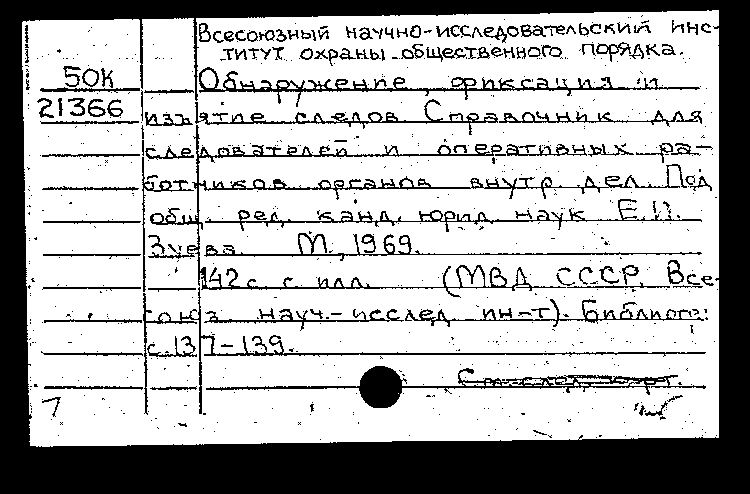 Всесоюзный научно-исследовательский инс-
титут охраны общественного порядка.
50К Обнаружение, фиксация и
21366 изъятие следов Справочник для
следователей и оперативных ра-
ботников органов внутр. дел. Под
общ. ред. канд. юрид. наук Е.И.
Зуева. М., 1969.
142 с. с илл. (МВД СССР. Все-
союз. науч.-исслед. ин-т). Библиогр:
с. 137-139.
См. след. карт.